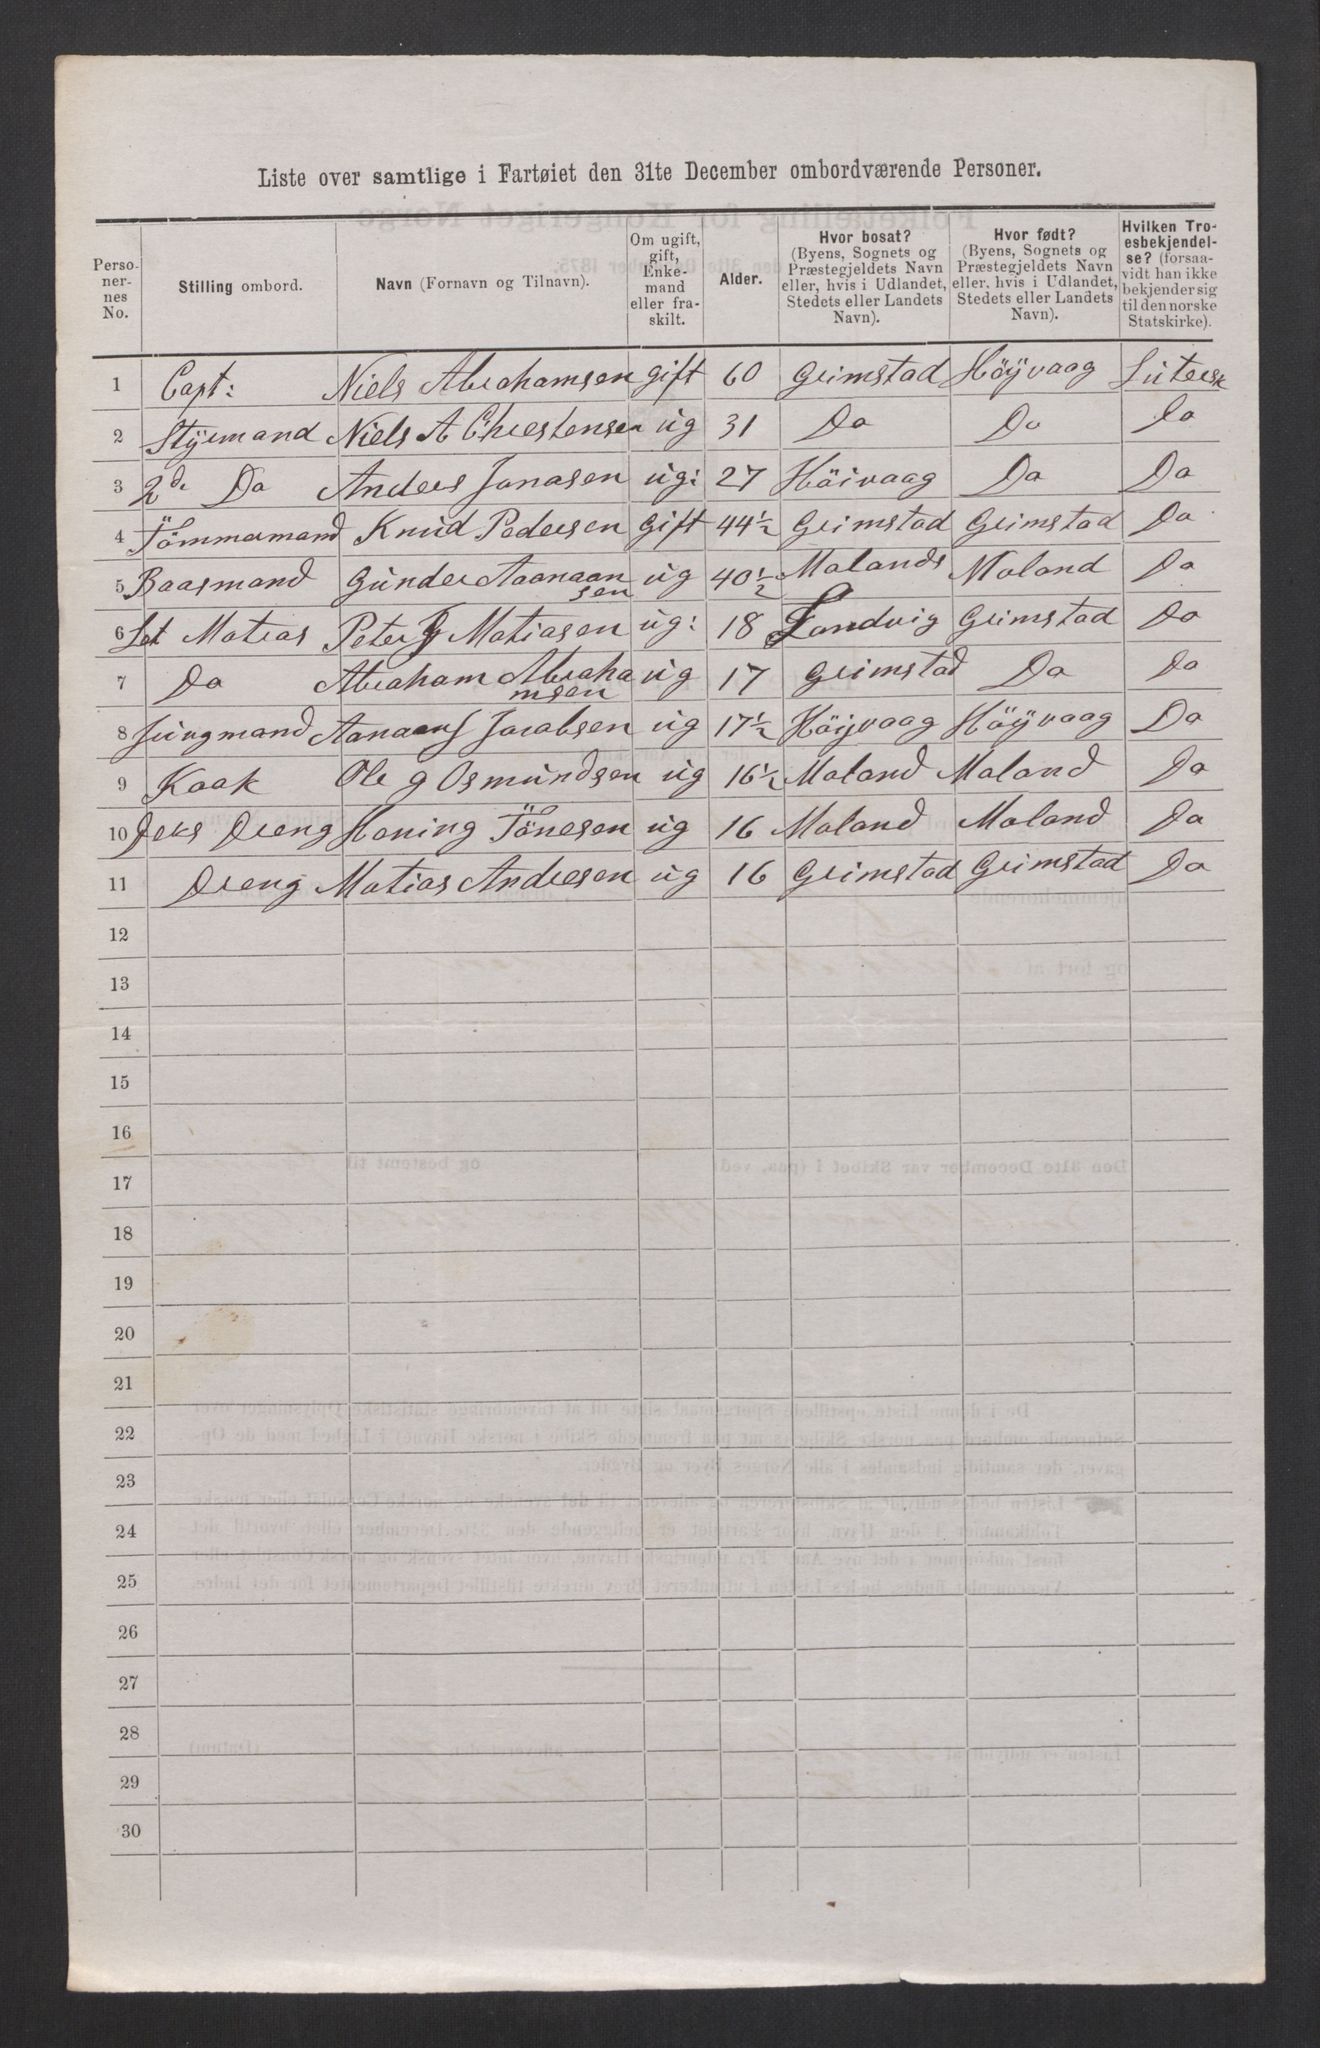 Liste over samtlige i Fartøiet den 31te December ombordværende Personer.
Personernes No. | Stilling ombord. | Navn (Fornavn og Tilnavn). | Om ugift, gift, Enkemand eller fraskilt. | Alder. | Hvor bosat? (Byens, Sognets og Præstegjeldets Navn eller, hvis i Udlandet, Stedets eller Landets Navn). | Hvor født? (Byens, Sognets og Præstegjeldets Navn eller, hvis i Udlandet, Stedets eller Landets Navn). | Hvilken Troesbekjendelse? (forsaavidt han ikke bekjender sig til den norske Statskirke).
1 Capt: Niels Abrahamsen gift 60 Grimstad Höÿvaag Lutersk
2 Styrmand Niels A Chrestensen ug 31 Do Do Do
3 2de Do Anders Jonasen ug: 27 Höivaag Do Do
4 Tömmermand Knud Pedersen gift 44½ Grimstad Grimstad Do
5 Baasmand Gunder Aanaansen ug 40½ Molands Moland Do
6 Let Matros Peter G Matiasen ug: 18 Landvig Grimstad Do
7 Do Abraham Abrahamsen ug 17 Grimstad Do Do
8 Jungmand Aanaan J Jacobsen ug 17½ Höÿvaag Höÿvaag Do
9 Kaak Ole G Osmundsen ug 16½ Moland Moland Do
10 Deks Dreng Honing Tönesen ug 16 Moland Moland Do
11 Dreng Matias Andresen ug 16 Grimstad Grimstad Do
12
13
14
15
16
17
18
19
20
21
22
23
24
25
26
27
28
29
30